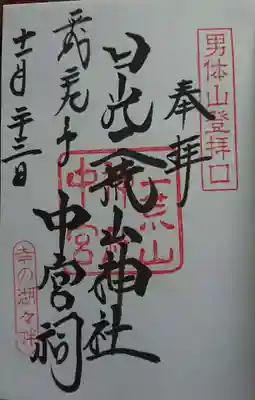 男体山登拝口
奉拝
日光二荒山神社
中宮祠
二荒山
中宮祠
十一月二十三日
幸の湖々畔